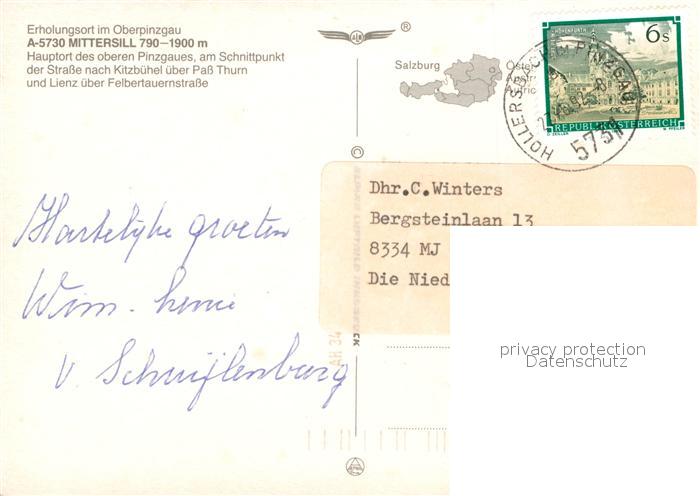 Erholungsort im Oberpinzgau
A-5730 MITTERSILL 790–1900 m
Hauptort des oberen Pinzgaues, am Schnittpunkt
der Straße nach Kitzbühel über Paß Thurn
und Lienz über Felbertauernstraße
®
Salzburg
6s
REPUBLIK ÖSTERREICH
HOLLERSBACH IM PINZGAU
5731
©
Dhr.C.Winters
Bergsteinlaan 13
8334 MJ
Die Nied
Hartelijke groeten
Wim - henie
v. Schuijlenburg
AH 34
privacy protection
Datenschutz